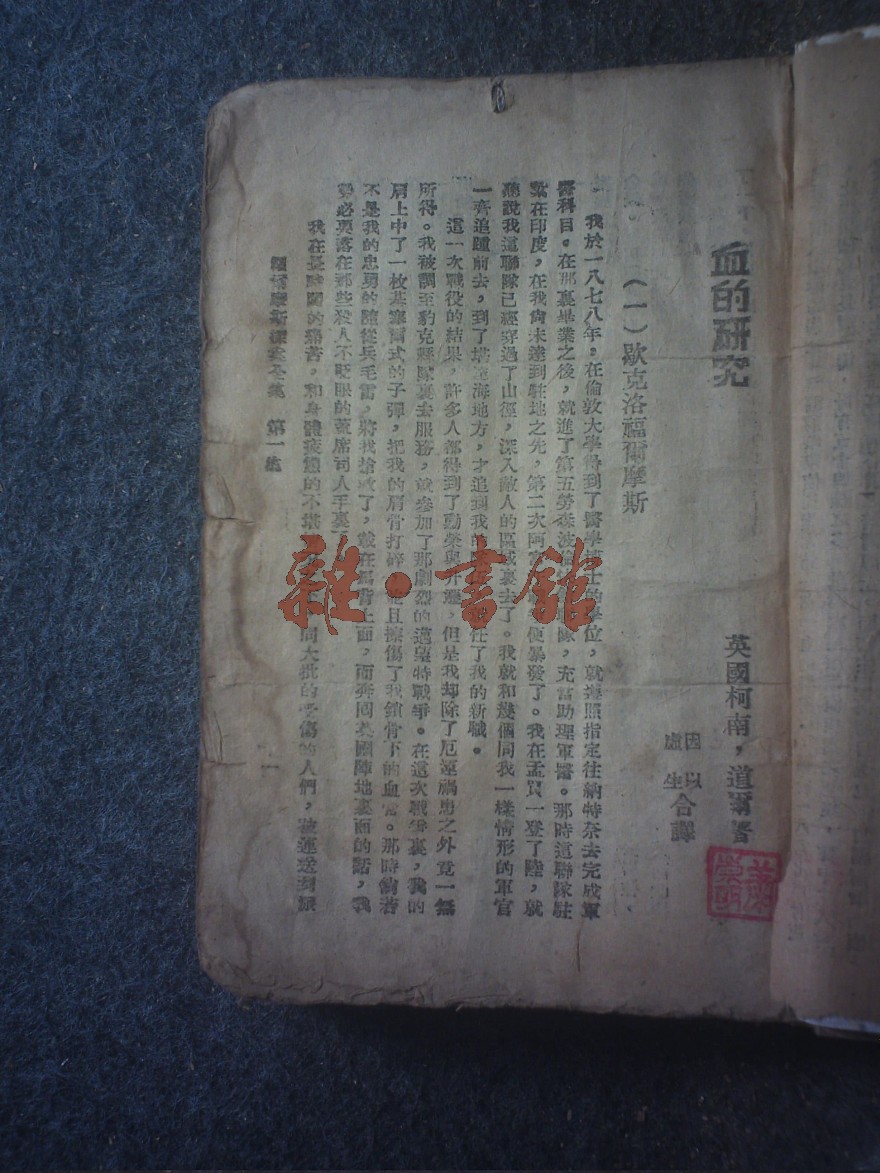 血的研究
英國柯南，道爾著
因以
虛生
合譯
（一）歇克洛福爾摩斯
我於一八七八年。在倫敦大學得到了醫學博士的學位，就遵照指定往納特奈去完成軍
醫科目。在那裏畢業之後，就進了第五勞森波倫隊，充當助理軍醫。那時這聯隊駐
紮在印度，在我尙未達到駐地之先，第二次阿便暴發了。我在孟買一登了陸，就
聽說我這聯隊已經穿過了山徑，深入敵人的區域裏去了。我就和幾個同我一樣情形的軍官
一齊追踵前去，到了海地方，才追到我的任了我的新職。
這一次戰役的結果，許多人都得到了勳榮與升遷，但是我却除了厄運禍患之外竟一無
所得。我被調至豹克縣隊裏去服務，就參加了那劇烈的邁望特戰爭。在這次戰爭裏，我的
肩上中了一枚基寒爾式的子彈，把我的肩骨打碎且擦傷了我鎖骨下的血管。那時倘若
不是我的忠勇的隨從兵毛雷，將我搶救了，載在馬背上面，而奔回英國陣地裏面的話，我
勢必要落在那些殺人不眨眼的蓋席司人手裏
我在長時間的痛苦，和身體疲憊的不堪同大批的受傷的人們，被運送到
福爾摩斯探案全集　第一集
一
雜·書館